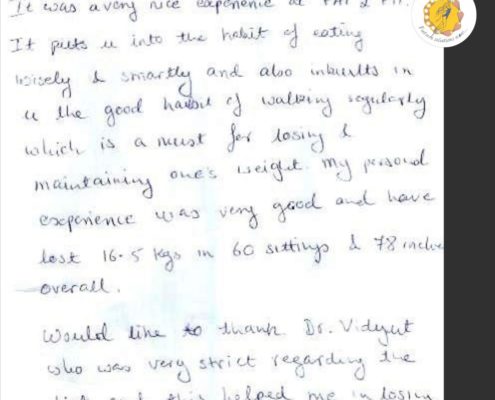 It was a very nice experience at
It puts u into the habit of eating
wisely & smartly and also inbuilts in
u the good habit of walking regularly
which is a must for losing &
maintaining one's weight. My personal
experience was very good and have
lost 16.5 Kgs in 60 sittings & 78 inches
overall.
Would like to thank Dr. Vidyut
who was very strict regarding the
diet and this helped me in losing